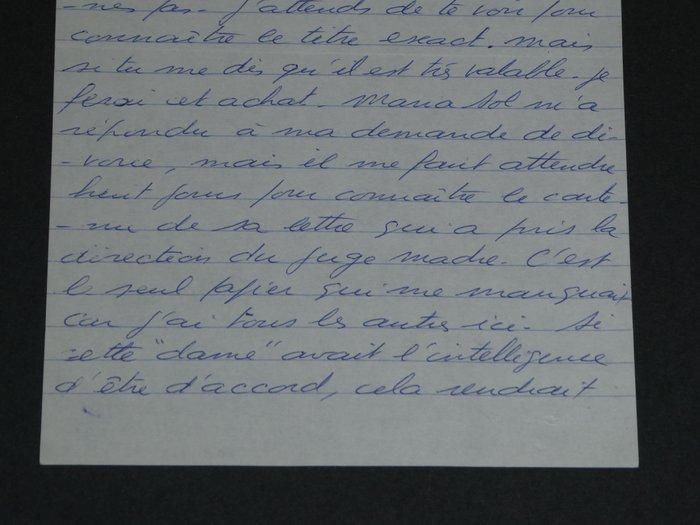 -nes pas - j'attends de te voir pour
connaître le titre exact. mais
si tu me dis qu'il est très valable - je
ferai cet achat. Maria Sol m'a
répondu à ma demande de di-
-vorce, mais il me faut attendre
huit jours pour connaître le conte-
-nu de sa lettre qui a pris la
direction du juge madre. C'est
le seul papier qui me manquait
car j'ai tous les autres ici. Si
cette "dame" avait l'intelligence
d'être d'accord, cela rendrait